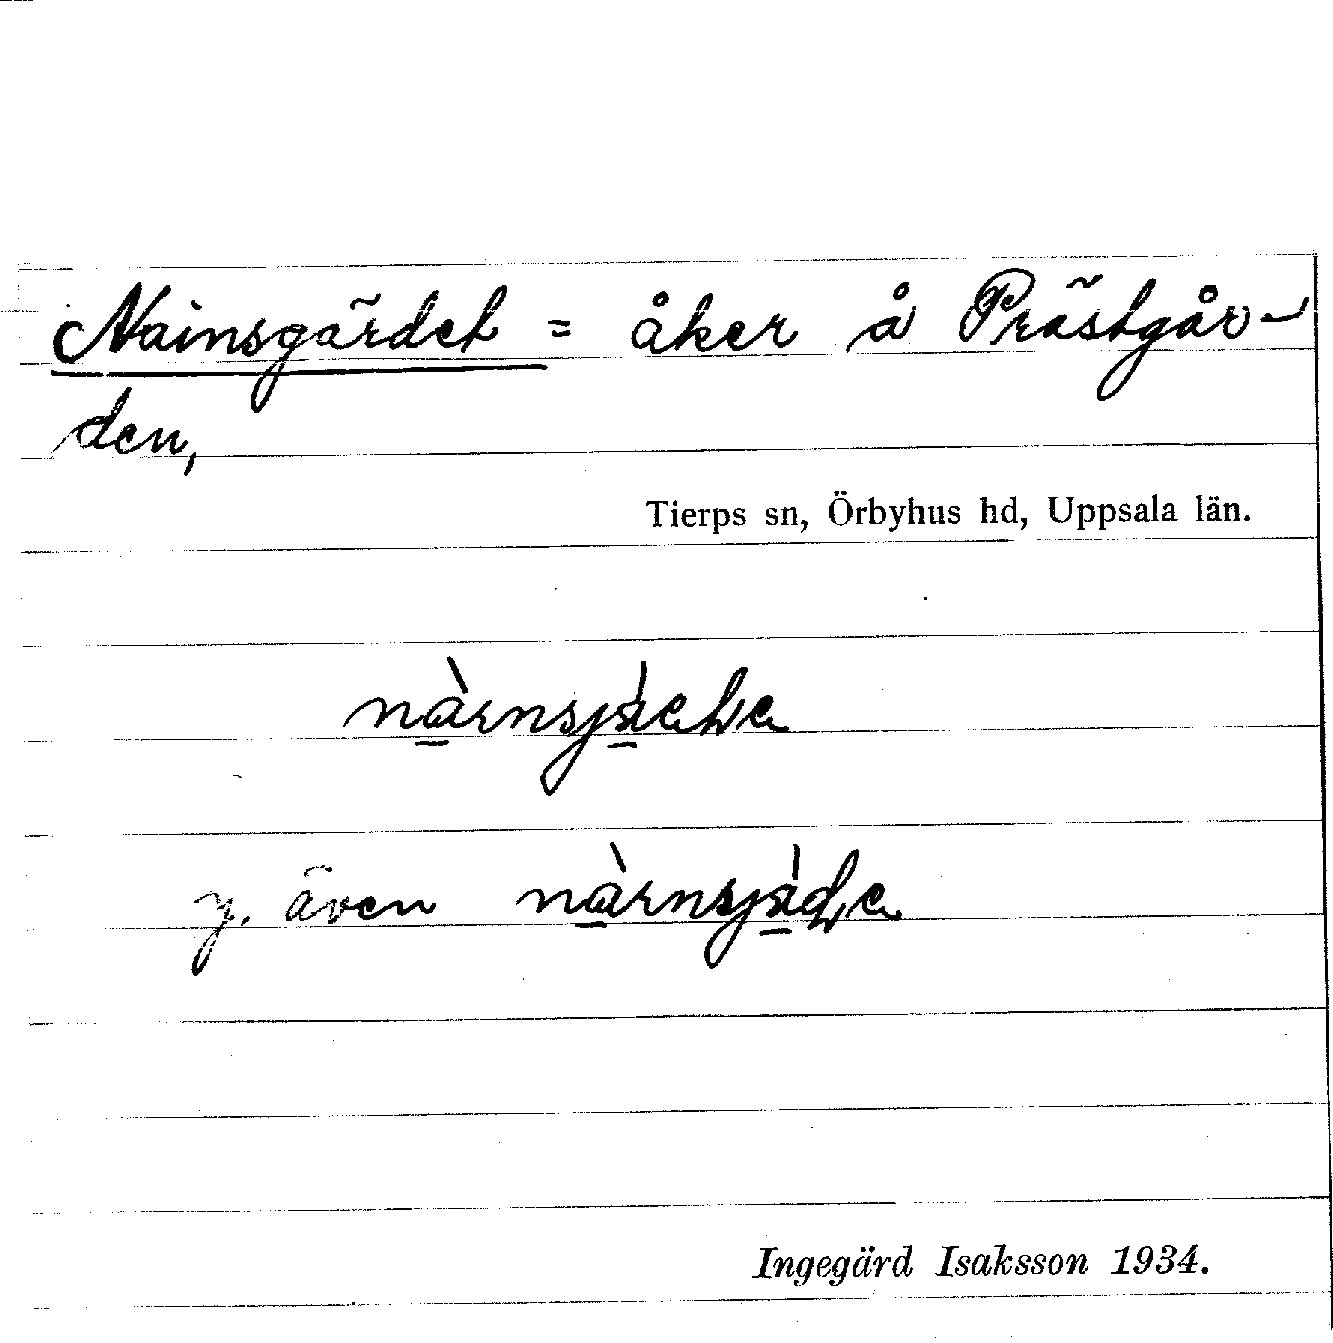 Nainsgärdet = åker å Prästgår-
den,
Tierps sn, Örbyhus hd, Uppsala län.
y. även
Ingegärd Isaksson 1934.